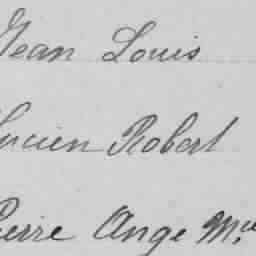 Jean Louis
Lucien Robert
Pierre Ange Mie